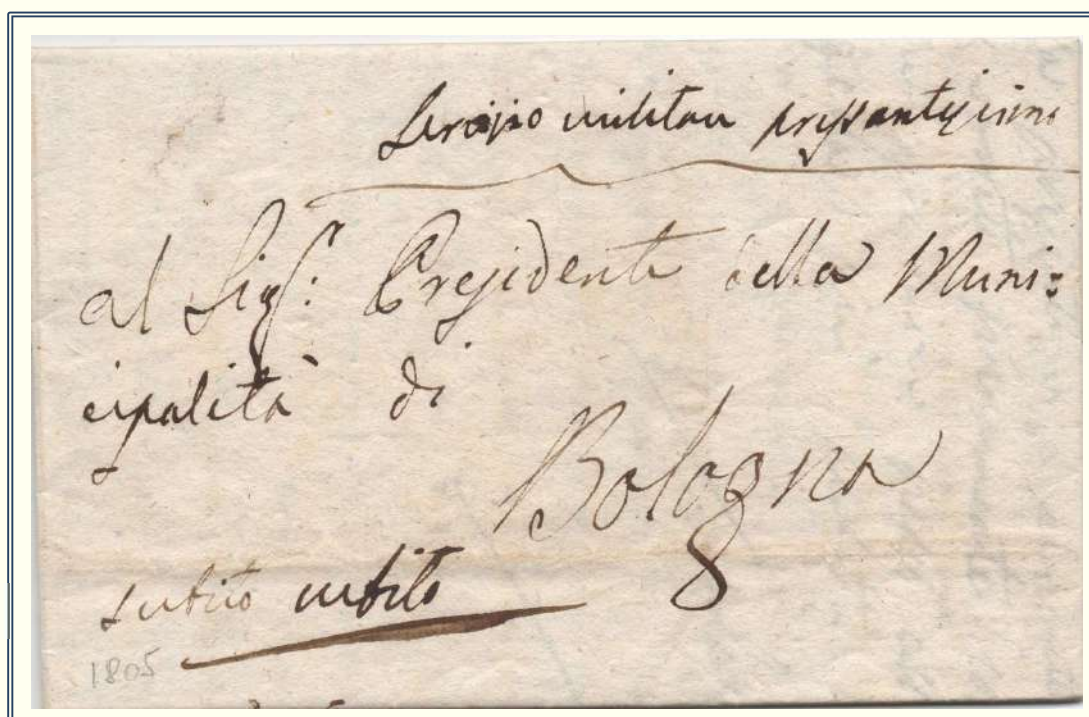 Servizio militare pressantissimo
al Sig.: Presidente della Muni:
cipalità di
Bologna
subito subito
1805